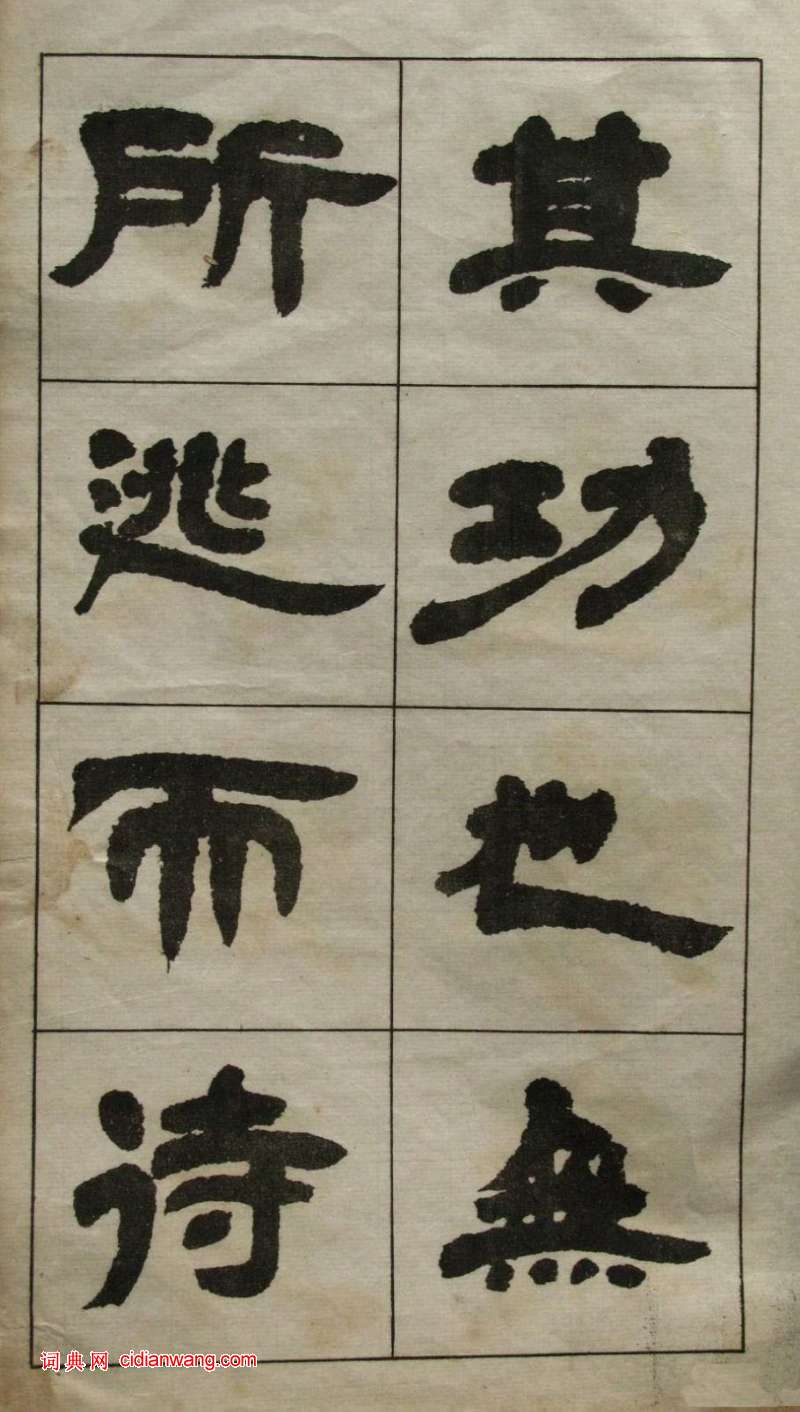 其功也無
所逃而待
词典网 cidianwang.com